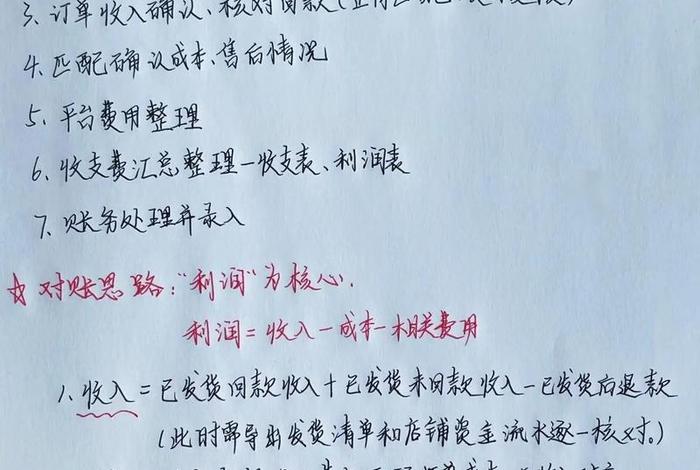 3. 订单收入确认、核对回款(
4. 匹配确认成本、售后情况
5. 平台费用整理
6. 收支费汇总整理-收支表、利润表
7. 账务处理并录入
☆ 对账思路:“利润”为核心.
利润=收入-成本-相关费用
1. 收入=已发货回款收入+已发货未回款收入-已发货后退款
(此时需导出发货清单和店铺资金流水逐一核对。)